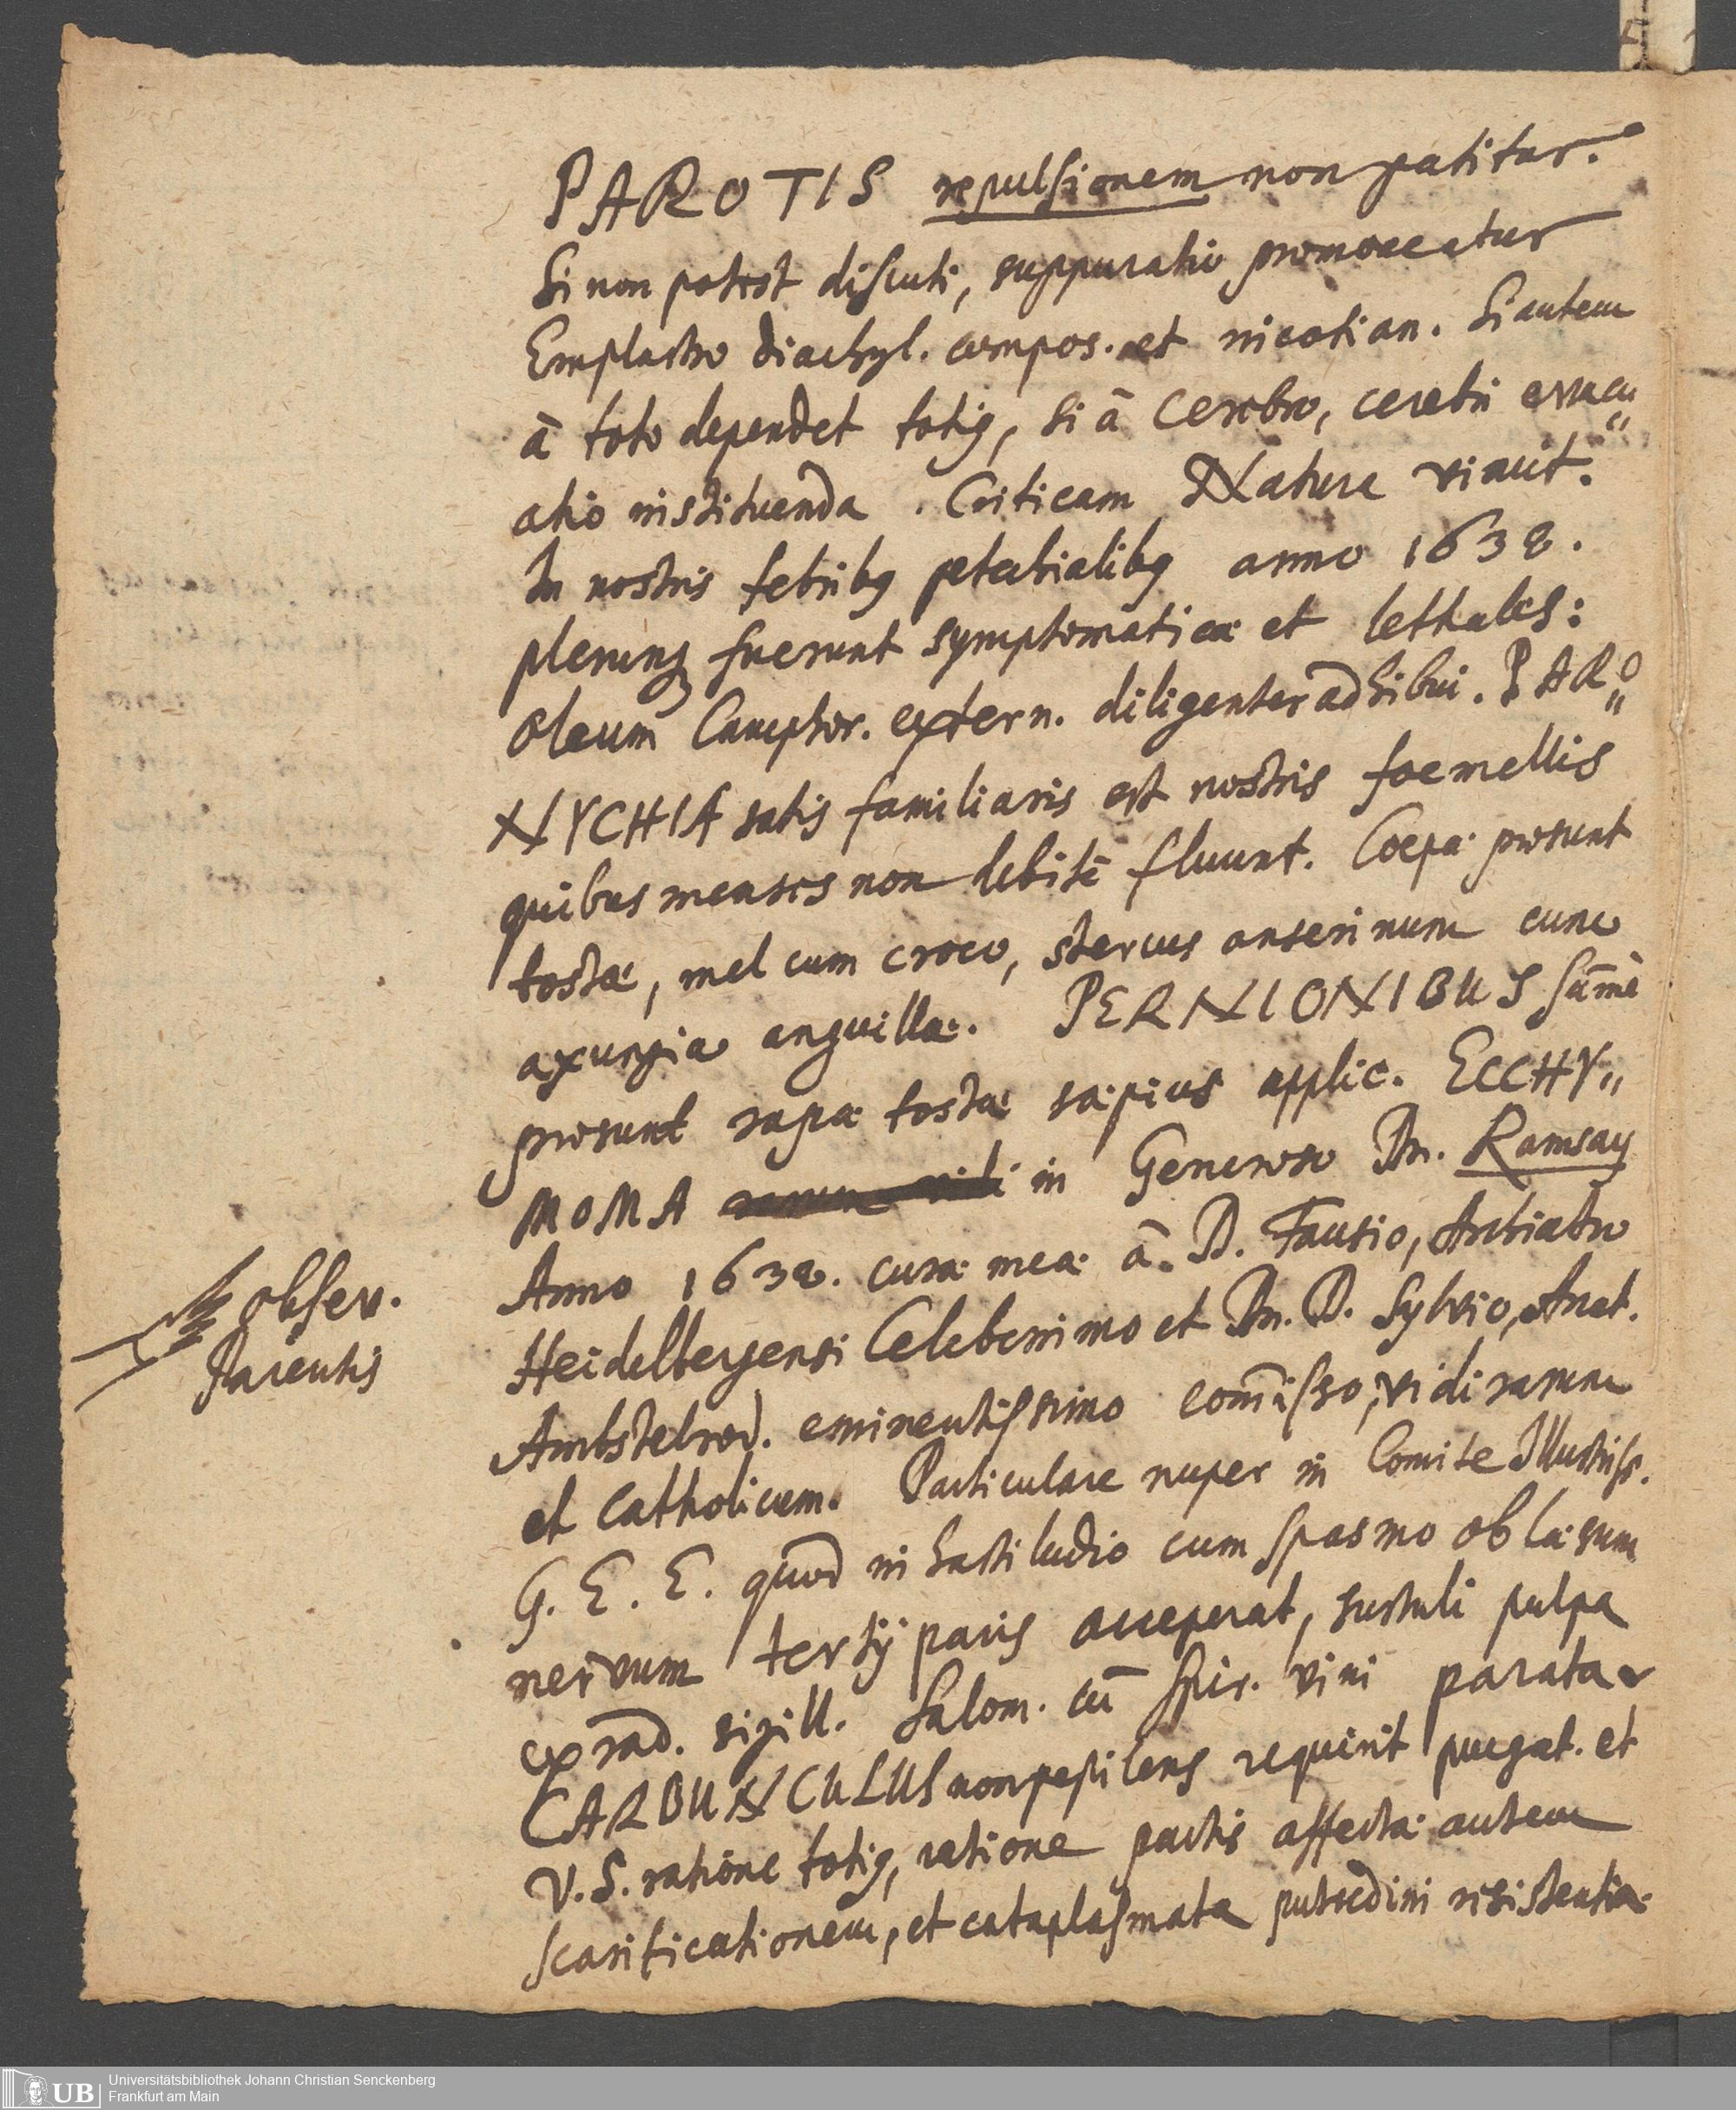 PAROTIS repulsionem non patitur.
Si non potest discuti, suppuratio promoveatur
Emplastro diachyl. compos. et nicotian. Si autem
à toto dependet totig, si à Cerebro, cerebri evacu„
atio instituenda. Criticam Natura vincit.
In nostris febribg petechialibg anno 1638.
plerumq fuerunt symptomaticæ et lethales:
Oleum Camphor. extern. diligenter adhibui. PARO„
NYCHIA satis familiaris est nostris foemellis
quibus menses non debitè fluunt. Coepæ prosunt
tostæ, mel cum croco, stercus anserinum cum
axungia anguillæ. PERNIONIBUS sum̄è
prosunt rapæ tostæ sæpius applic. ECCHY„
MOMA rarum vidi in Generoso Dn. Ramsay
Anno 1638. curæ meæ à. D. Fausio, Archiatro
Heidelbergensi Celeberrimo et Dn. D. Sylvio, Anat.
Ambstelrod. eminentissimo com̄isso, vidi rarum
et catholicum. Particulare nuper in Comite Illustriss.
G. E. E. quod in hastiludio cum spasmo ob læsum
nervum tertij paris acceperat, sustuli pulpa
ex rad. sigill. Salom. cū spir. vini parata.
CARBUNCULUS non pestilens requirit purgat. et
V. S. ratione totig, ratione partis affectæ autem
scarificationem, et cataplasmata putredini resistentia.
obser.
Parentis
Universitätsbibliothek Johann Christian Senckenberg
UB Frankfurt am Main